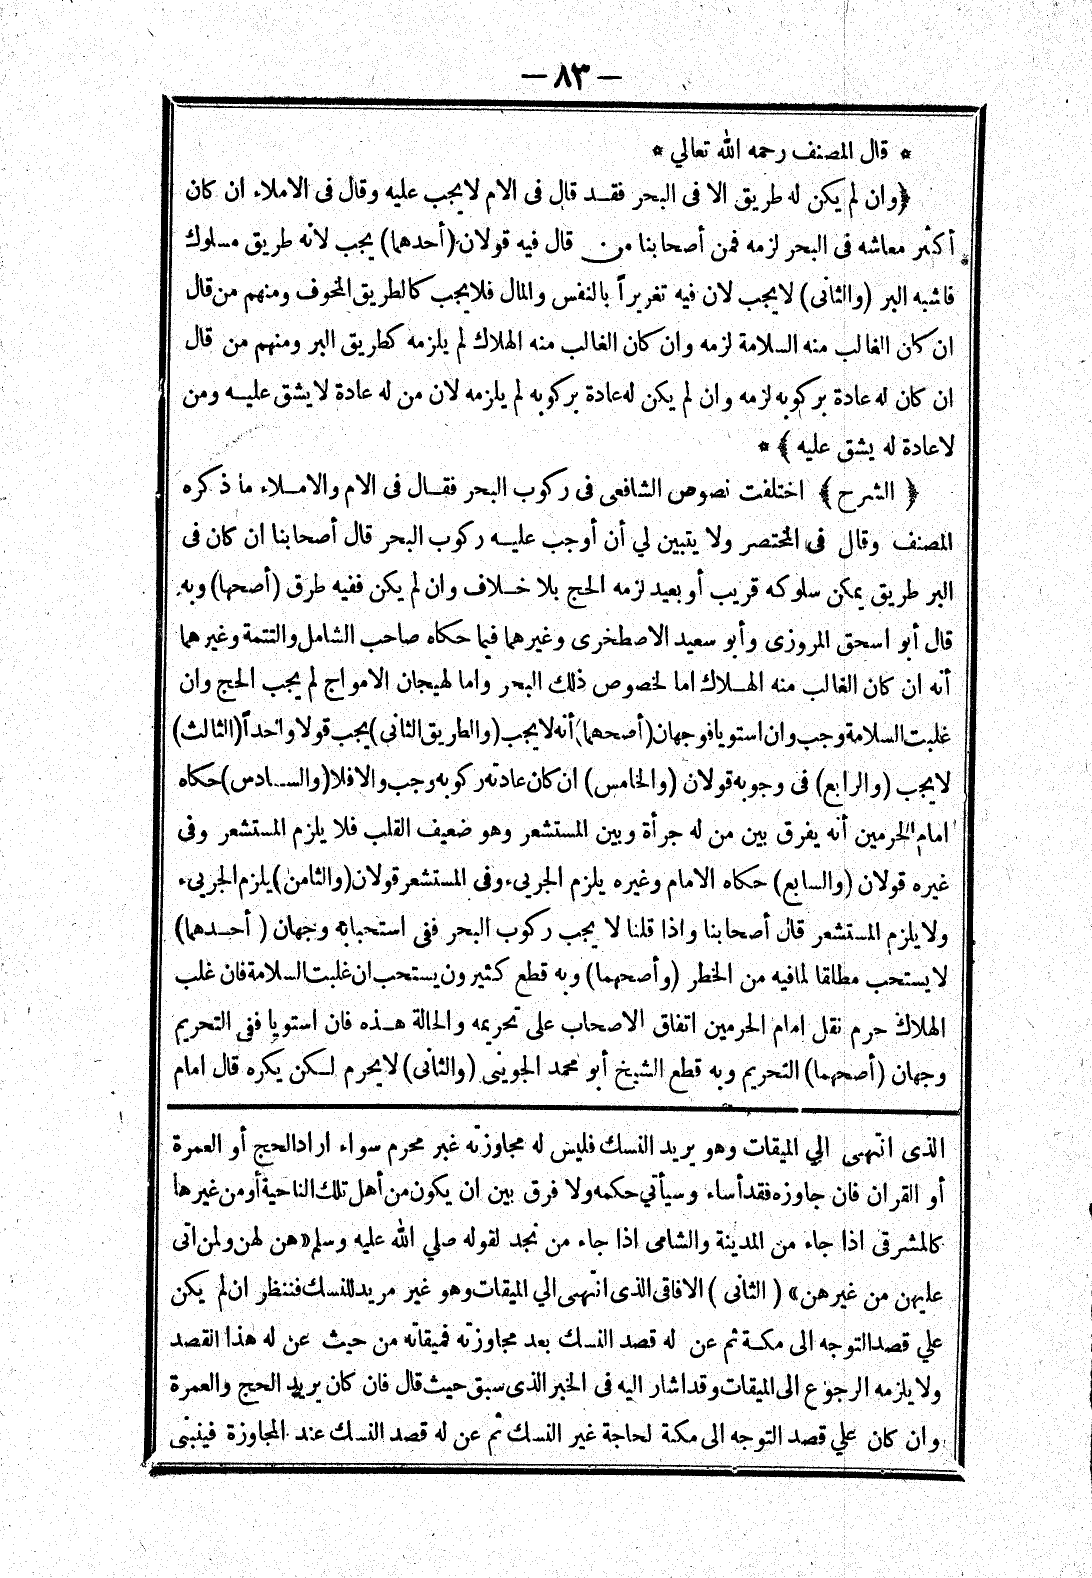 — ٨٣ —
* قال المصنف رحمه الله تعالي *
﴿وان لم يكن له طريق الا فى البحر فقد قال فى الام لايجب عليه وقال فى الاملاء ان كان
أكثر معاشه فى البحر لزمه فمن أصحابنا من قال فيه قولان (أحدهما) يجب لانه طريق مسلوك
فاشبه البر (والثانى) لايجب لان فيه تغريراً بالنفس والمال فلايجب كالطريق المخوف ومنهم من قال
ان كان الغالب منه السلامة لزمه وان كان الغالب منه الهلاك لم يلزمه كطريق البر ومنهم من قال
ان كان له عادة بركوبه لزمه وان لم يكن له عادة بركوبه لم يلزمه لان من له عادة لايشق عليه ومن
لاعادة له يشق عليه ﴾ *
﴿ الشرح ﴾ اختلفت نصوص الشافعى فى ركوب البحر فقال فى الام والاملاء ما ذكره
المصنف وقال فى المختصر ولا يتبين لي أن أوجب عليه ركوب البحر قال أصحابنا ان كان فى
البر طريق يمكن سلوكه قريب أو بعيد لزمه الحج بلا خلاف وان لم يكن ففيه طرق (أصحها) وبه
قال أبو اسحق المروزى وأبو سعيد الاصطخرى وغيرهما فيما حكاه صاحب الشامل والتتمة وغيرهما
أنه ان كان الغالب منه الهلاك اما لخصوص ذلك البحر واما لهيجان الامواج لم يجب الحج وان
غلبت السلامة وجب وان استويا فوجهان (أصحهما) أنه لايجب (والطريق الثانى) يجب قولا واحداً (الثالث)
لايجب (والرابع) فى وجوبه قولان (والخامس) ان كان عادته ركوبه وجب والافلا (والسادس) حكاه
امام الحرمين أنه يفرق بين من له جرأة وبين المستشعر وهو ضعيف القلب فلا يلزم المستشعر وفى
غيره قولان (والسابع) حكاه الامام وغيره يلزم الجريء وفى المستشعر قولان (والثامن) يلزم الجريء
ولايلزم المستشعر قال أصحابنا واذا قلنا لا يجب ركوب البحر ففى استحبابه وجهان ( أحدهما)
لايستحب مطلقا لمافيه من الخطر (وأصحهما) وبه قطع كثيرون يستحب ان غلبت السلامة فان غلب
الهلاك حرم نقل امام الحرمين اتفاق الاصحاب على تحريمه والحالة هذه فان استويا ففى التحريم
وجهان (أصحهما) التحريم وبه قطع الشيخ أبو محمد الجوينى (والثانى) لايحرم لكن يكره قال امام
الذى انتهى الي الميقات وهو يريد النسك فليس له مجاوزته غير محرم سواء ارادالحج أو العمرة
أو القران فان جاوزه فقد أساء وسيأتي حكمه ولا فرق بين ان يكون من أهل تلك الناحية أو من غيرها
كالمشرقى اذا جاء من المدينة والشامى اذا جاء من نجد لقوله صلي الله عليه وسلم «هن لهن ولمن اتى
عليهن من غيرهن» ( الثانى ) الافاقى الذى انتهى الي الميقات وهو غير مريد للنسك فننظر ان لم يكن
علي قصد التوجه الى مكة ثم عن له قصد النسك بعد مجاوزته فميقاته من حيث عن له هذا القصد
ولا يلزمه الرجوع الى الميقات وقد اشار اليه فى الخبر الذى سبق حيث قال فان كان يريد الحج والعمرة
وان كان علي قصد التوجه الى مكة لحاجة غير النسك ثم عن له قصد النسك عند المجاوزة فينبنى